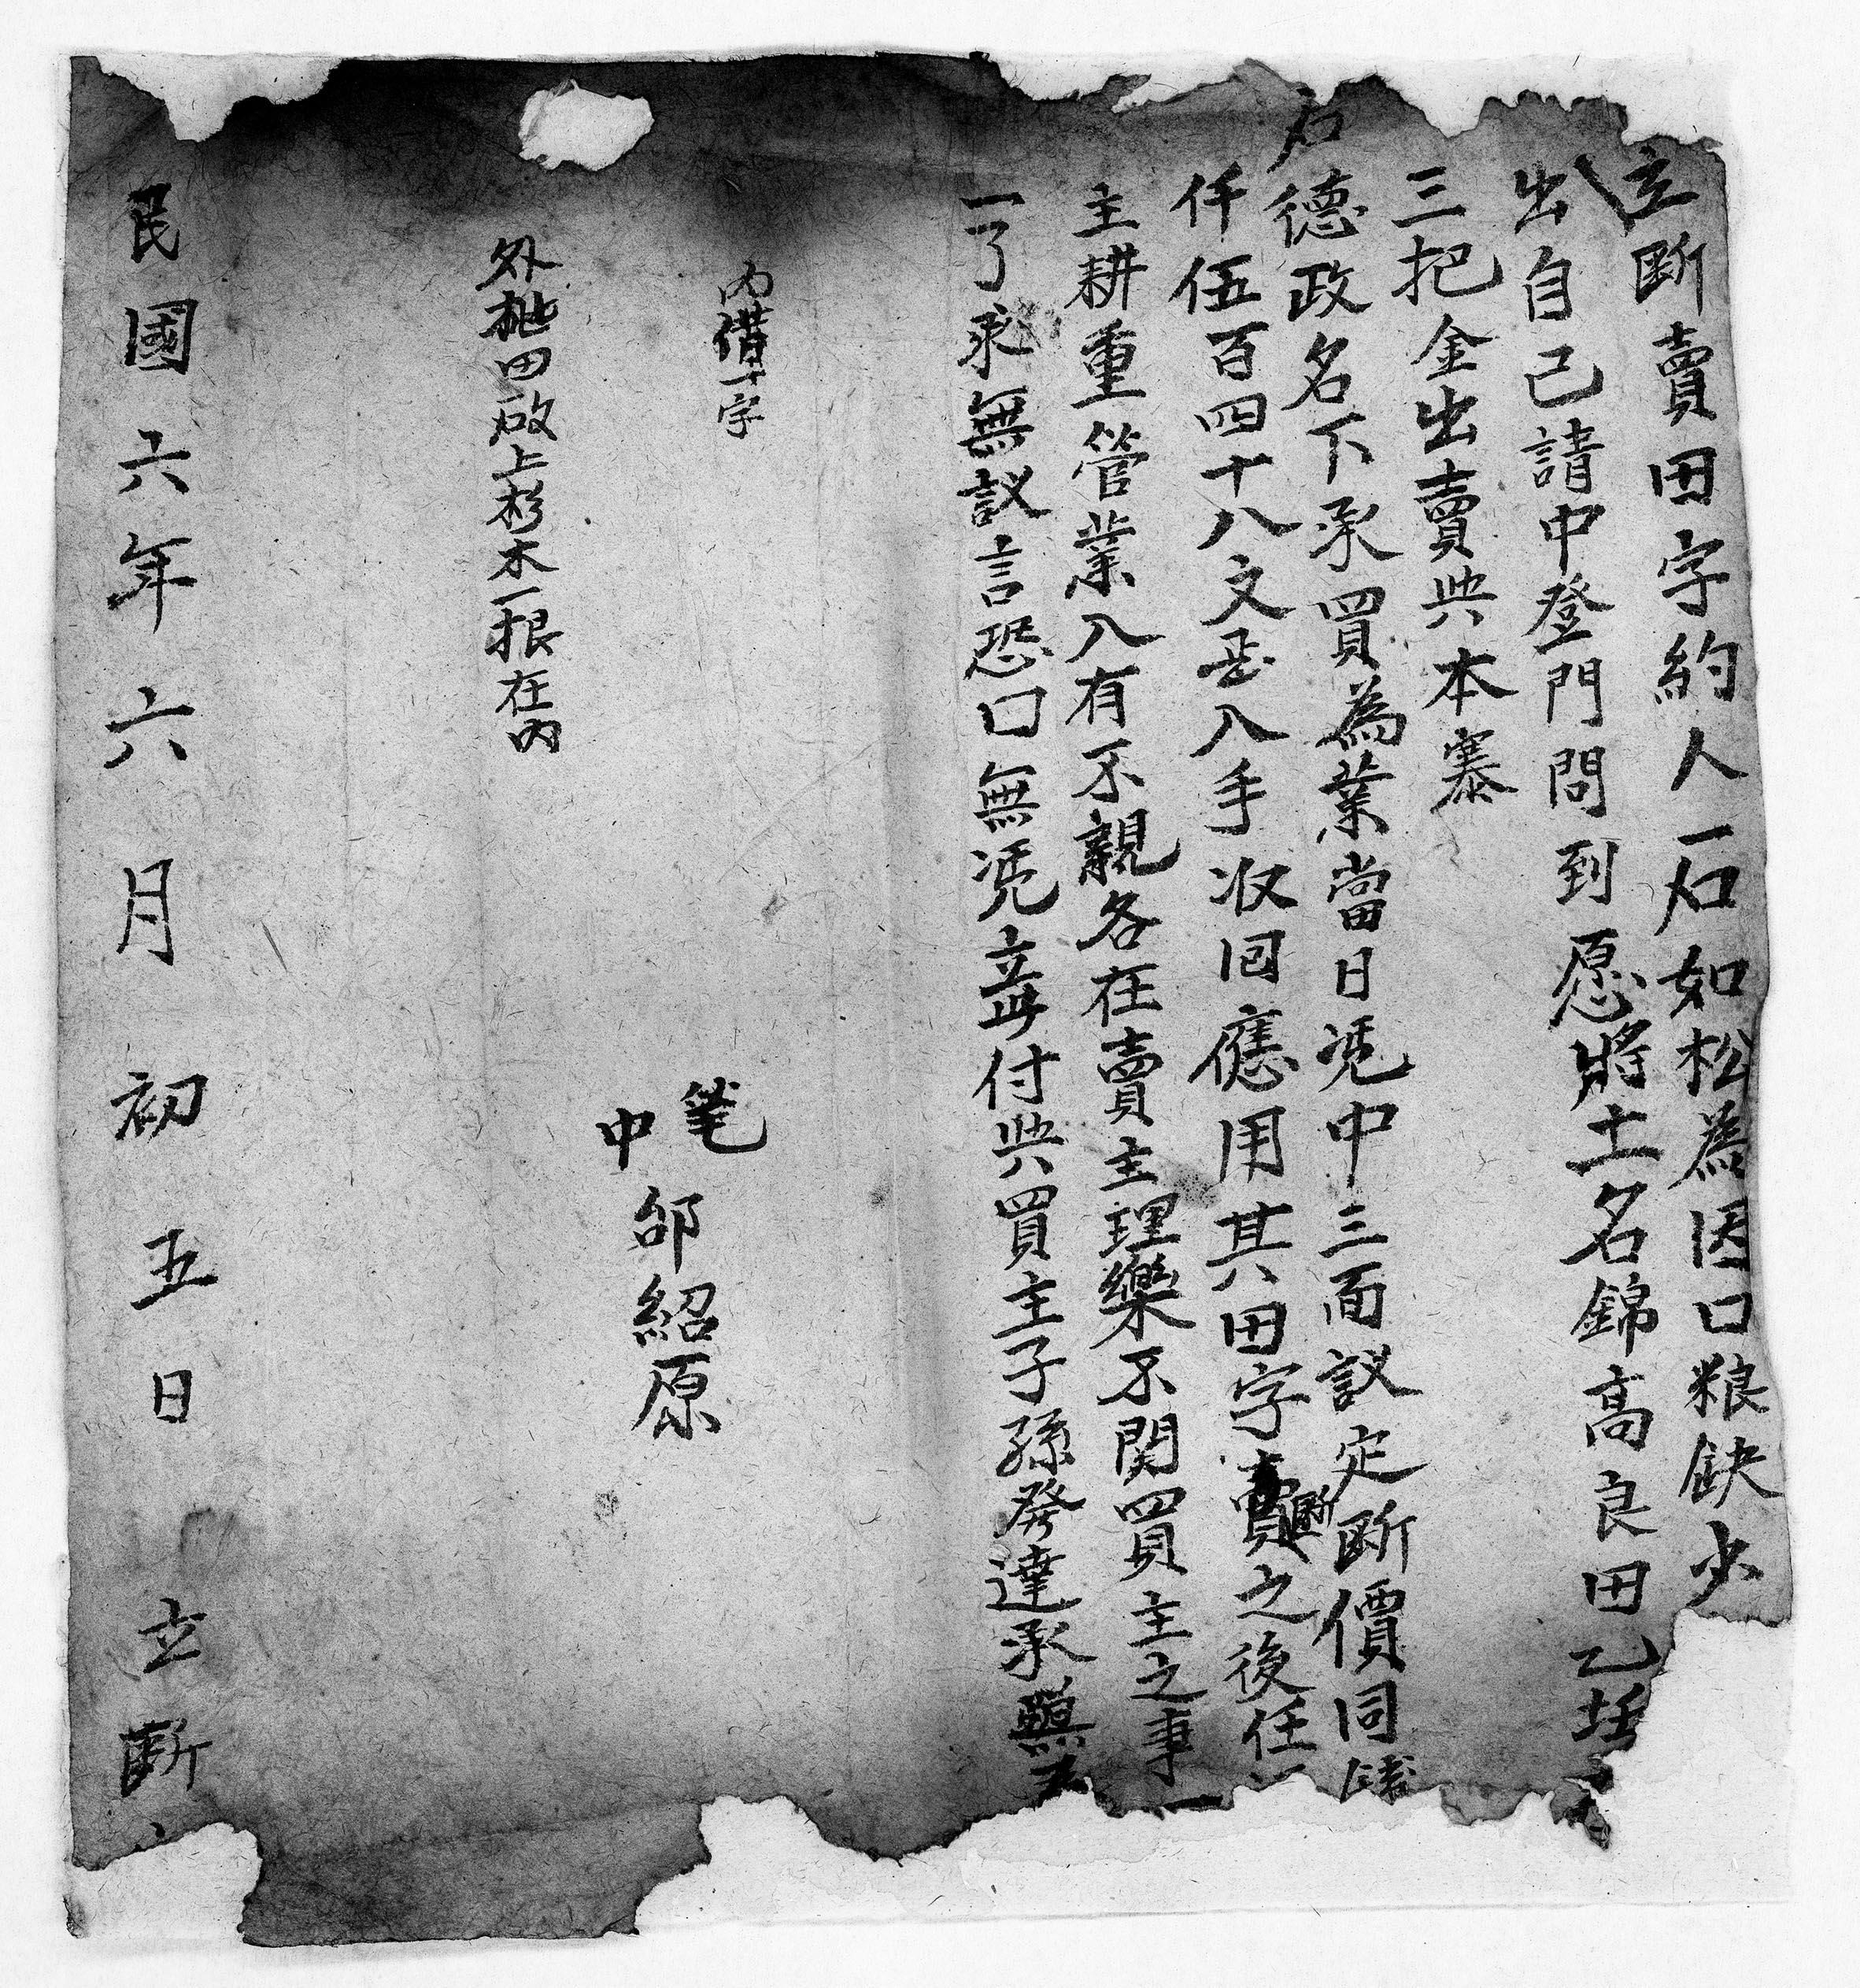 立斷賣田字約人石如松為因口粮缺少
出自己請中登門問到愿將土名錦高良田乙坵
三把金出賣與本寨
石德政名下承買為業當日凴中三面議定斷價同錢
仟伍百四十八文是入手收回應用其田字賣斷之後任
主耕重管業入有不親各在賣主理樂不関買主之事一
一了承無議言恐口無凴立此字付與買主子孫發達承照
内借一字
筆
中
邰紹原
外批田磡上杉木一根在内
民國六年六月初五日立斷